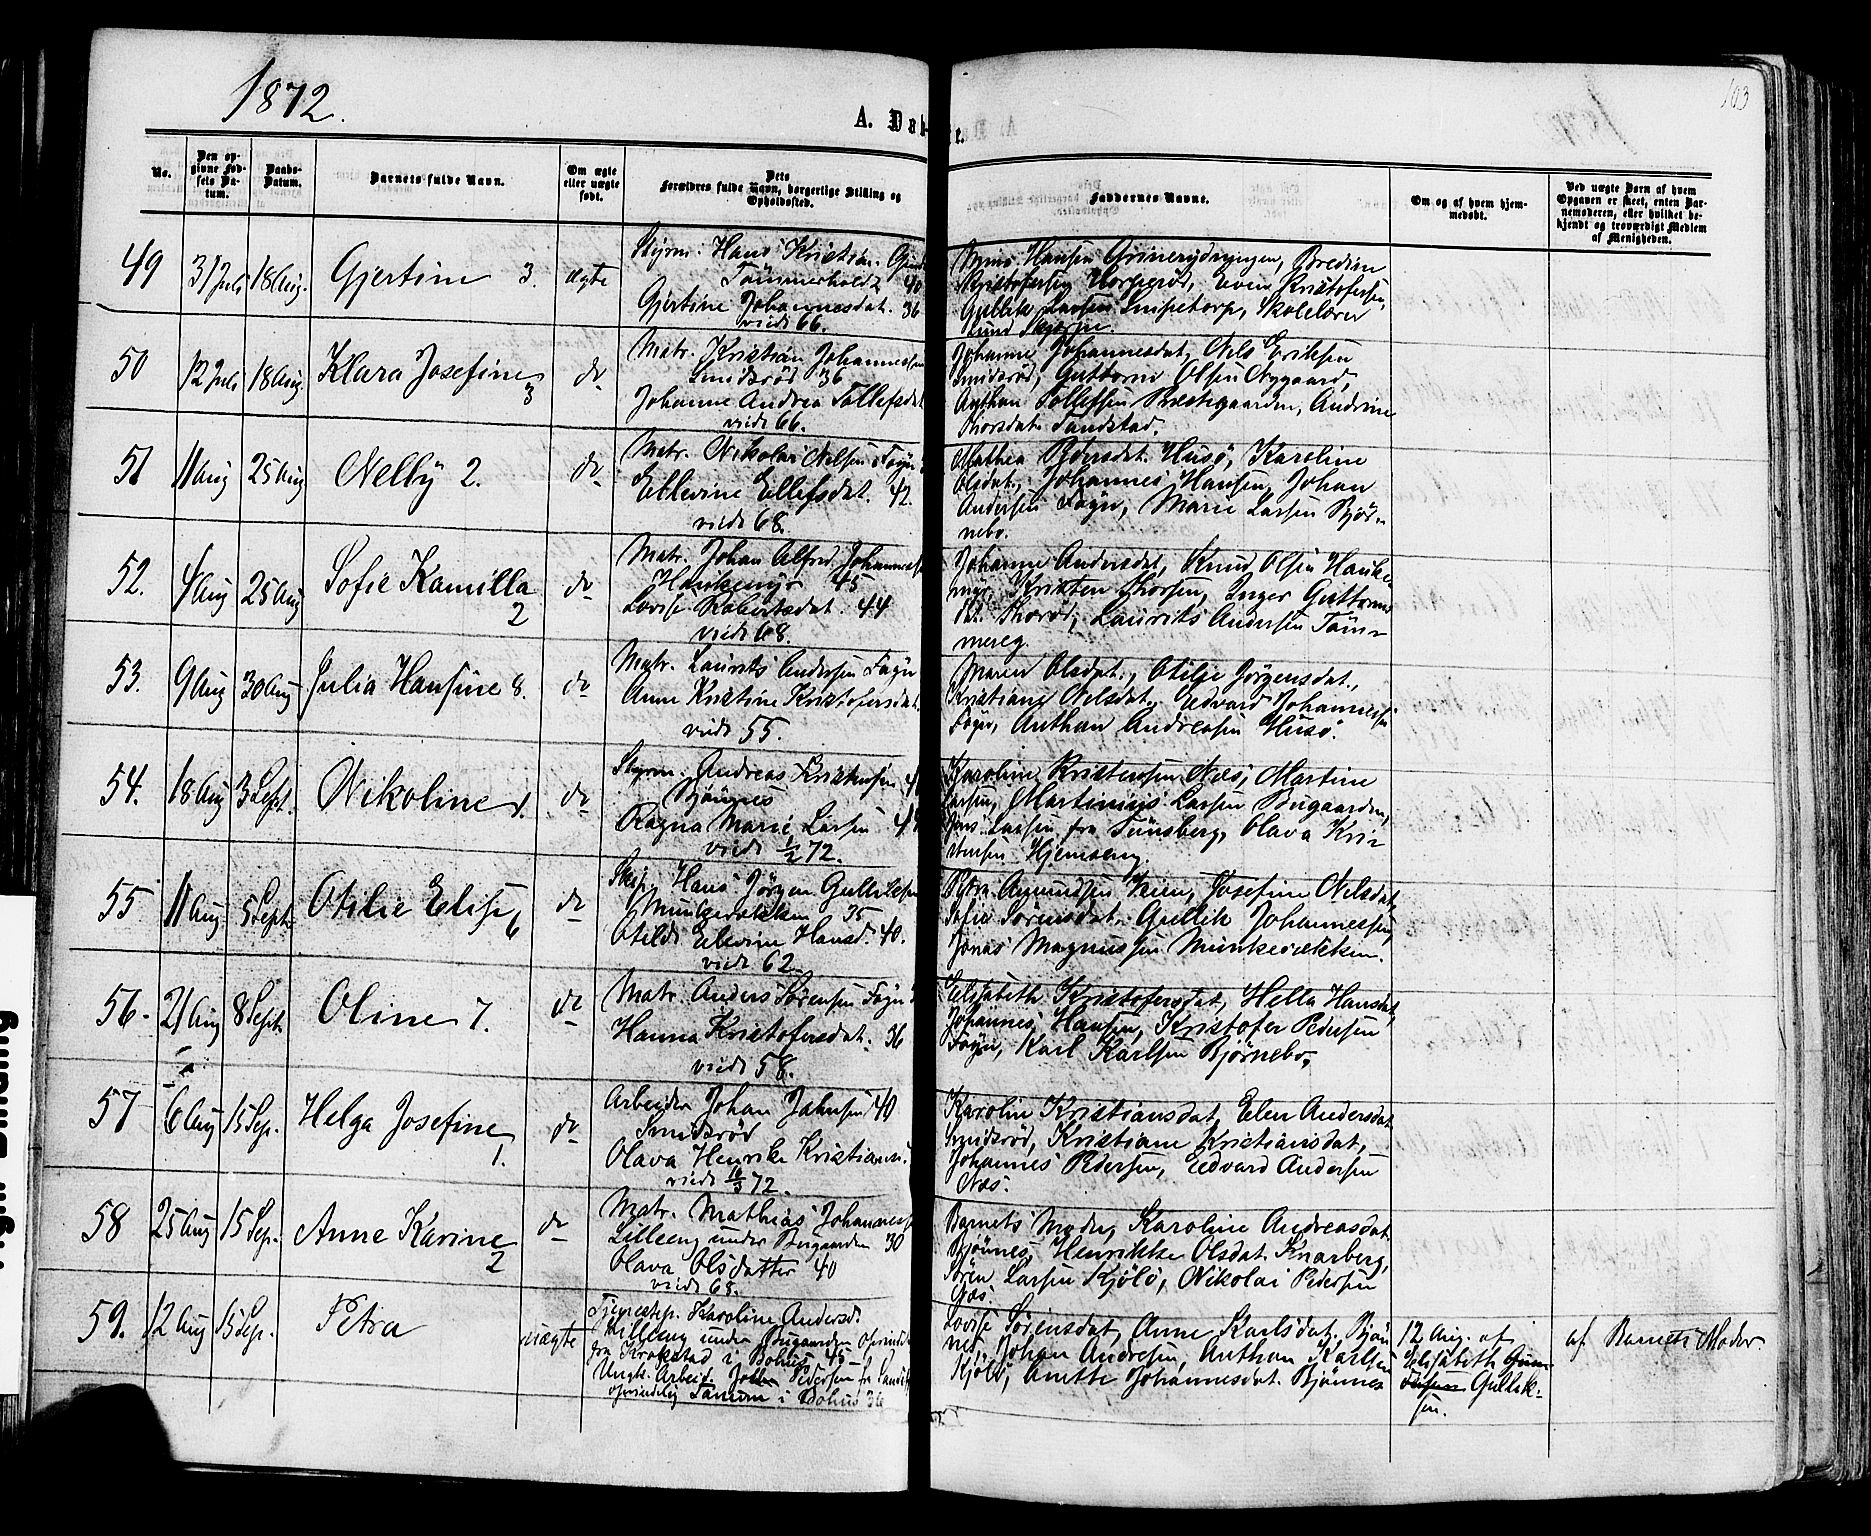 1872.
103
A. Døb
r.
No.
Den opgivne Fødsels Datum.
Daabs-Datum.
Barnets fulde Navn.
Om ægte eller uægte født.
Dets Forældres fulde Navn, borgerlige Stilling og Opholdssted.
Faddernes Navne.
Om og af hvem hjemmedøbt.
Ved uægte Børn af hvem Opgaven er skeet, enten Barnemoderen, eller hvilket bekjendt og troværdigt Medlem af Menigheden.
49 31 Juli 18 Aug. Gjertine 3. ægte
Styrm. Hans Kristian
Tömmerholdt 40
Gjertine Johannesdat. 36
viede 66.
Hansen Grinerydningen, Bredine
Kristofersen Horgerød, Even Kristofersen,
Gullik Larsen Snipetorp, Skolelærer
Lund
50 12 Juli 18 Aug. Klara Josefine 3 do
Matr. Kristian Johannessen
Smidsrød 36
Johanne Andrea Tollefsdat
viede 66.
Johanne Johannesdat, Nils Eriksen
Smidsrød, Guttorm Olsen Nygaard,
Anthon Tollefsen Præstegaarden, Andrine
Thorsdat. Sandstad.
51 11 Aug 25 Aug Nelly 2. do
Matr. Nikolai Nilsen Föyn
Ellevine Ellefsdat. 42.
viede 68.
Mathea Pedersdat. Husö, Karoline
Olsdat., Johannes Hansen, Johan
Andersen Föyn, Marie Larsen Björ-
nebo.
52. 4 Aug 25 Aug Sofie Kamilla 2 do
Matr. Johan Alfred Johanness
Hankemyr 45
Lovise Robertsdat. 44
viede 68.
Johanne Andersdat, Knud Olsen Hanke
myr, Kristen Thorsen, Inger Guttorms
dat. Thorød, Laurits Andersen Töm-
mereg.
53. 9 Aug 30 Aug Julia Hansine 8. do
Matr. Laurits Andersen Föyn
Anne Kristine Kristofersdat.
viede 55.
Maren Olsdat., Otilje Jörgensdat.,
Kristiane Nilsdat, Edvard Johannessen
Föyn, Anthon Andreasen Husö.
54. 18 Aug 3 Sept. Nikoline 1. do
Styrm. Andreas Kristensen
Bjönnes
Ragna Marie Larsen
viede 1/2 72.
Karoline Kristensen Næs, Martine
Larsen, Martinius Larsen Bugaarden,
Jens Larsen fra Tönsberg, Olava Kri-
stensen Hjemseng.
55 11 Aug 5 Sept Otilie Elise 6 do
Skip. Hans Jörgen Gulliksen
Munkerækken 35
Otilde Elevine Hansd. 40.
viede 62
Petra Amundsen Veien, Josefine Nilsdat,
Sofie Sörensdat, Gullik Johannessen,
Jonas Magnussen Munkerækken.
56. 21 Aug 8 Sept. Oline 7. do
Matr. Anders Sörensen Föyn
Hanna Kristofersdat. 36
viede 58.
Elisabeth Kristofersdat, Hella Hansdat,
Johannes Hansen, Kristofer Pedersen
Föyn, Karl Karlsen Bjørnebo,
57 6 Aug 15 Sep. Helga Josefine 1. do
Arbeider Johan Jahnsen 40
Smidsrød
Olava Henrike Kristians.
viede 16/3 72.
Karolin Kristiansdat, Elen Andersdat
Smidsrød, Kristiane Kristiansdat,
Johannes Pedersen, Edvard Andersen
Næs.
58 25 Aug 15 Sep. Anne Karine 2 do
Matr. Mathias Johanness
Lilleeng under Bugaarden 30
Olava Olsdatter 40
viede 68.
Barnets Moder, Karoline Andreasdat
Bjönnes, Henrikke Olsdat Knarberg,
Sören Larsen Kjölö, Nikolai Pedersen
Næs.
59. 12 Aug 15 Sep. Petra uægte
Tjenestep. Karoline Andersd.
Lilleeng under Bugaarden oprindel
fra Krokstad i Bohus 45 —
Ungk. Arbeid. Johan Pedersen fr Sandef
oprindelig Tanum i Bohus 36
Lovise Sörensdat, Anne Karlsdat. Bjön
nes, Johan Andresen, Anthon Karlsen
Kjölö, Anette Johannesdat. Bjönnes
12 Aug. af
Elisabeth Gun
Gullik-
sen.
af Barnets Moder.